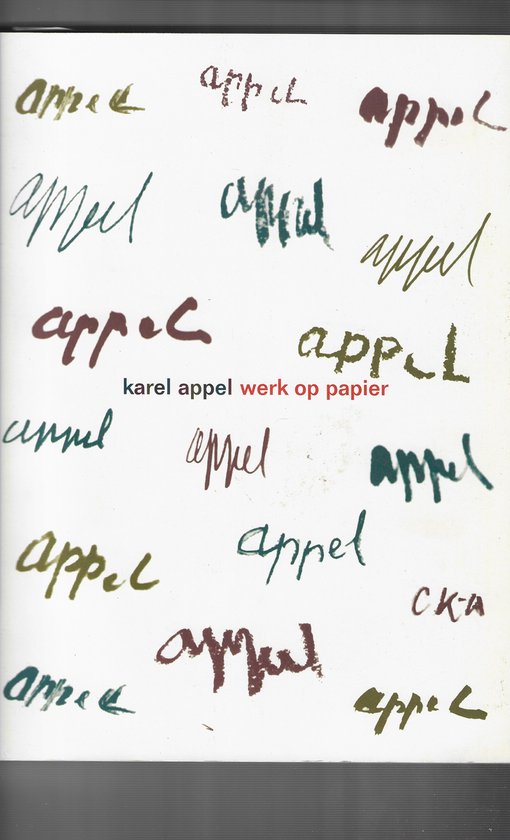 appel
appel
appel
appel
appel
appel
appel
appel
karel appel werk op papier
appel
appel
appel
appel
appel
CK-A
appel
appel
appel